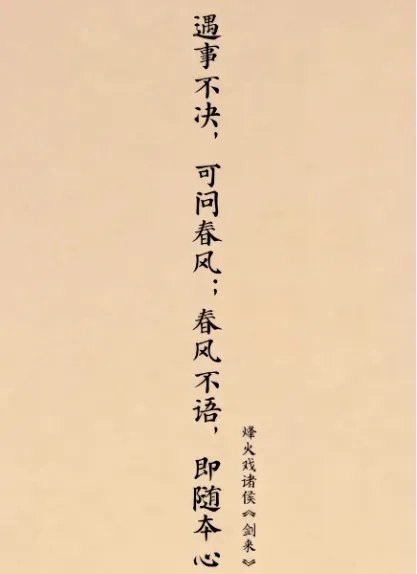 遇事不决，可问春风；春风不语，即随本心
烽火戏诸侯《剑来》